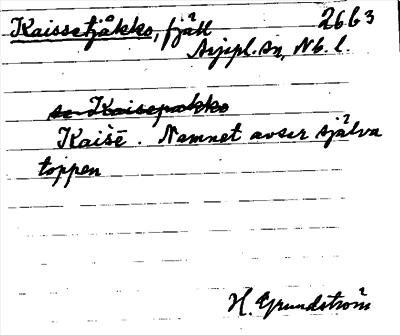 Kaissetjåkko, fjäll 26 G 3
Arjepl. sn, Nb. l.
se Kaisepakko
Kaišē. Namnet avser själva
toppen
H. Grundström